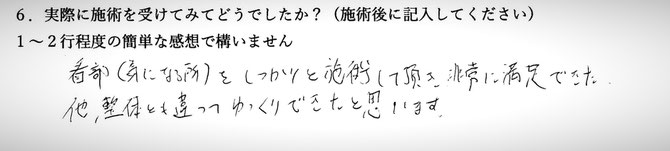 6．実際に施術を受けてみてどうでしたか？（施術後に記入してください）
1～2行程度の簡単な感想で構いません
着部（気になる所）をしっかりと施術して頂き、非常に満足できた．
他、整体とも違ってゆっくりできたと思います．